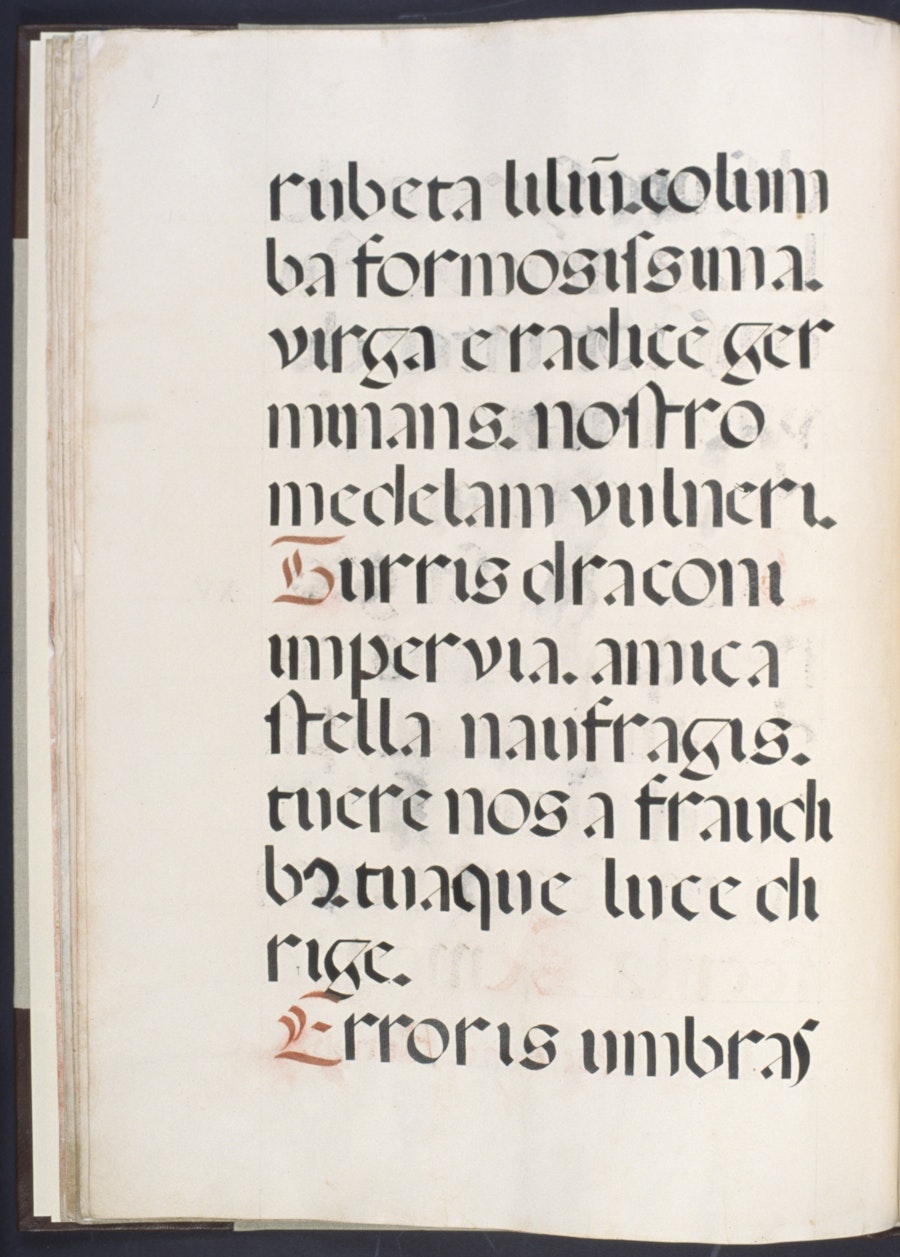 rubeta liliū. colum
ba formosiſsima.
virga e radice ger
minans. noſtro
medelam vulneri.
Turris draconi
impervia. amica
ſtella naufragis.
tuere nos a fraudi
bꝰ. tuaque luce di
rige.
Erroris umbras